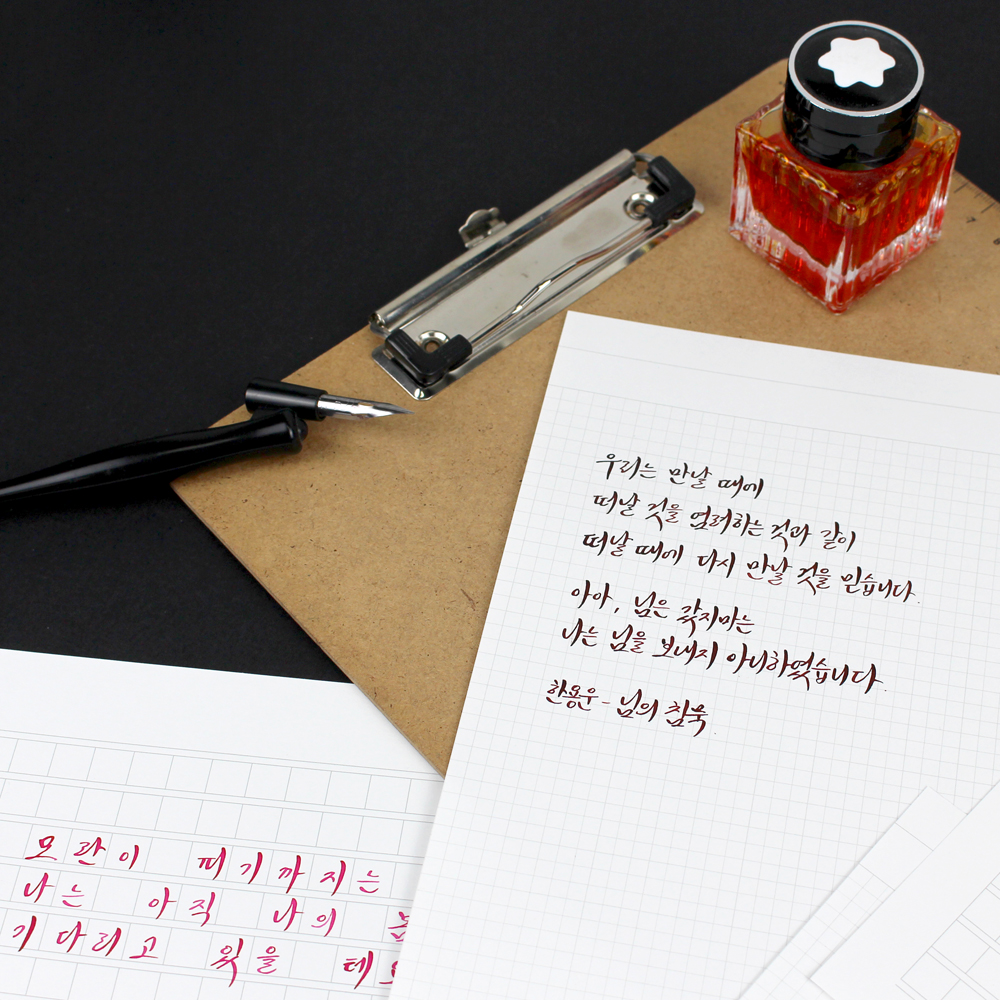 우리는 만날 때에
떠날 것을 염려하는 것과 같이
떠날 때에 다시 만날 것을 믿습니다.
아아, 님은 갔지마는
나는 님을 보내지 아니하였습니다.
한용운 - 님의 침묵.
모란이 피기까지는
나는 아직 나의
기다리고 있을 테